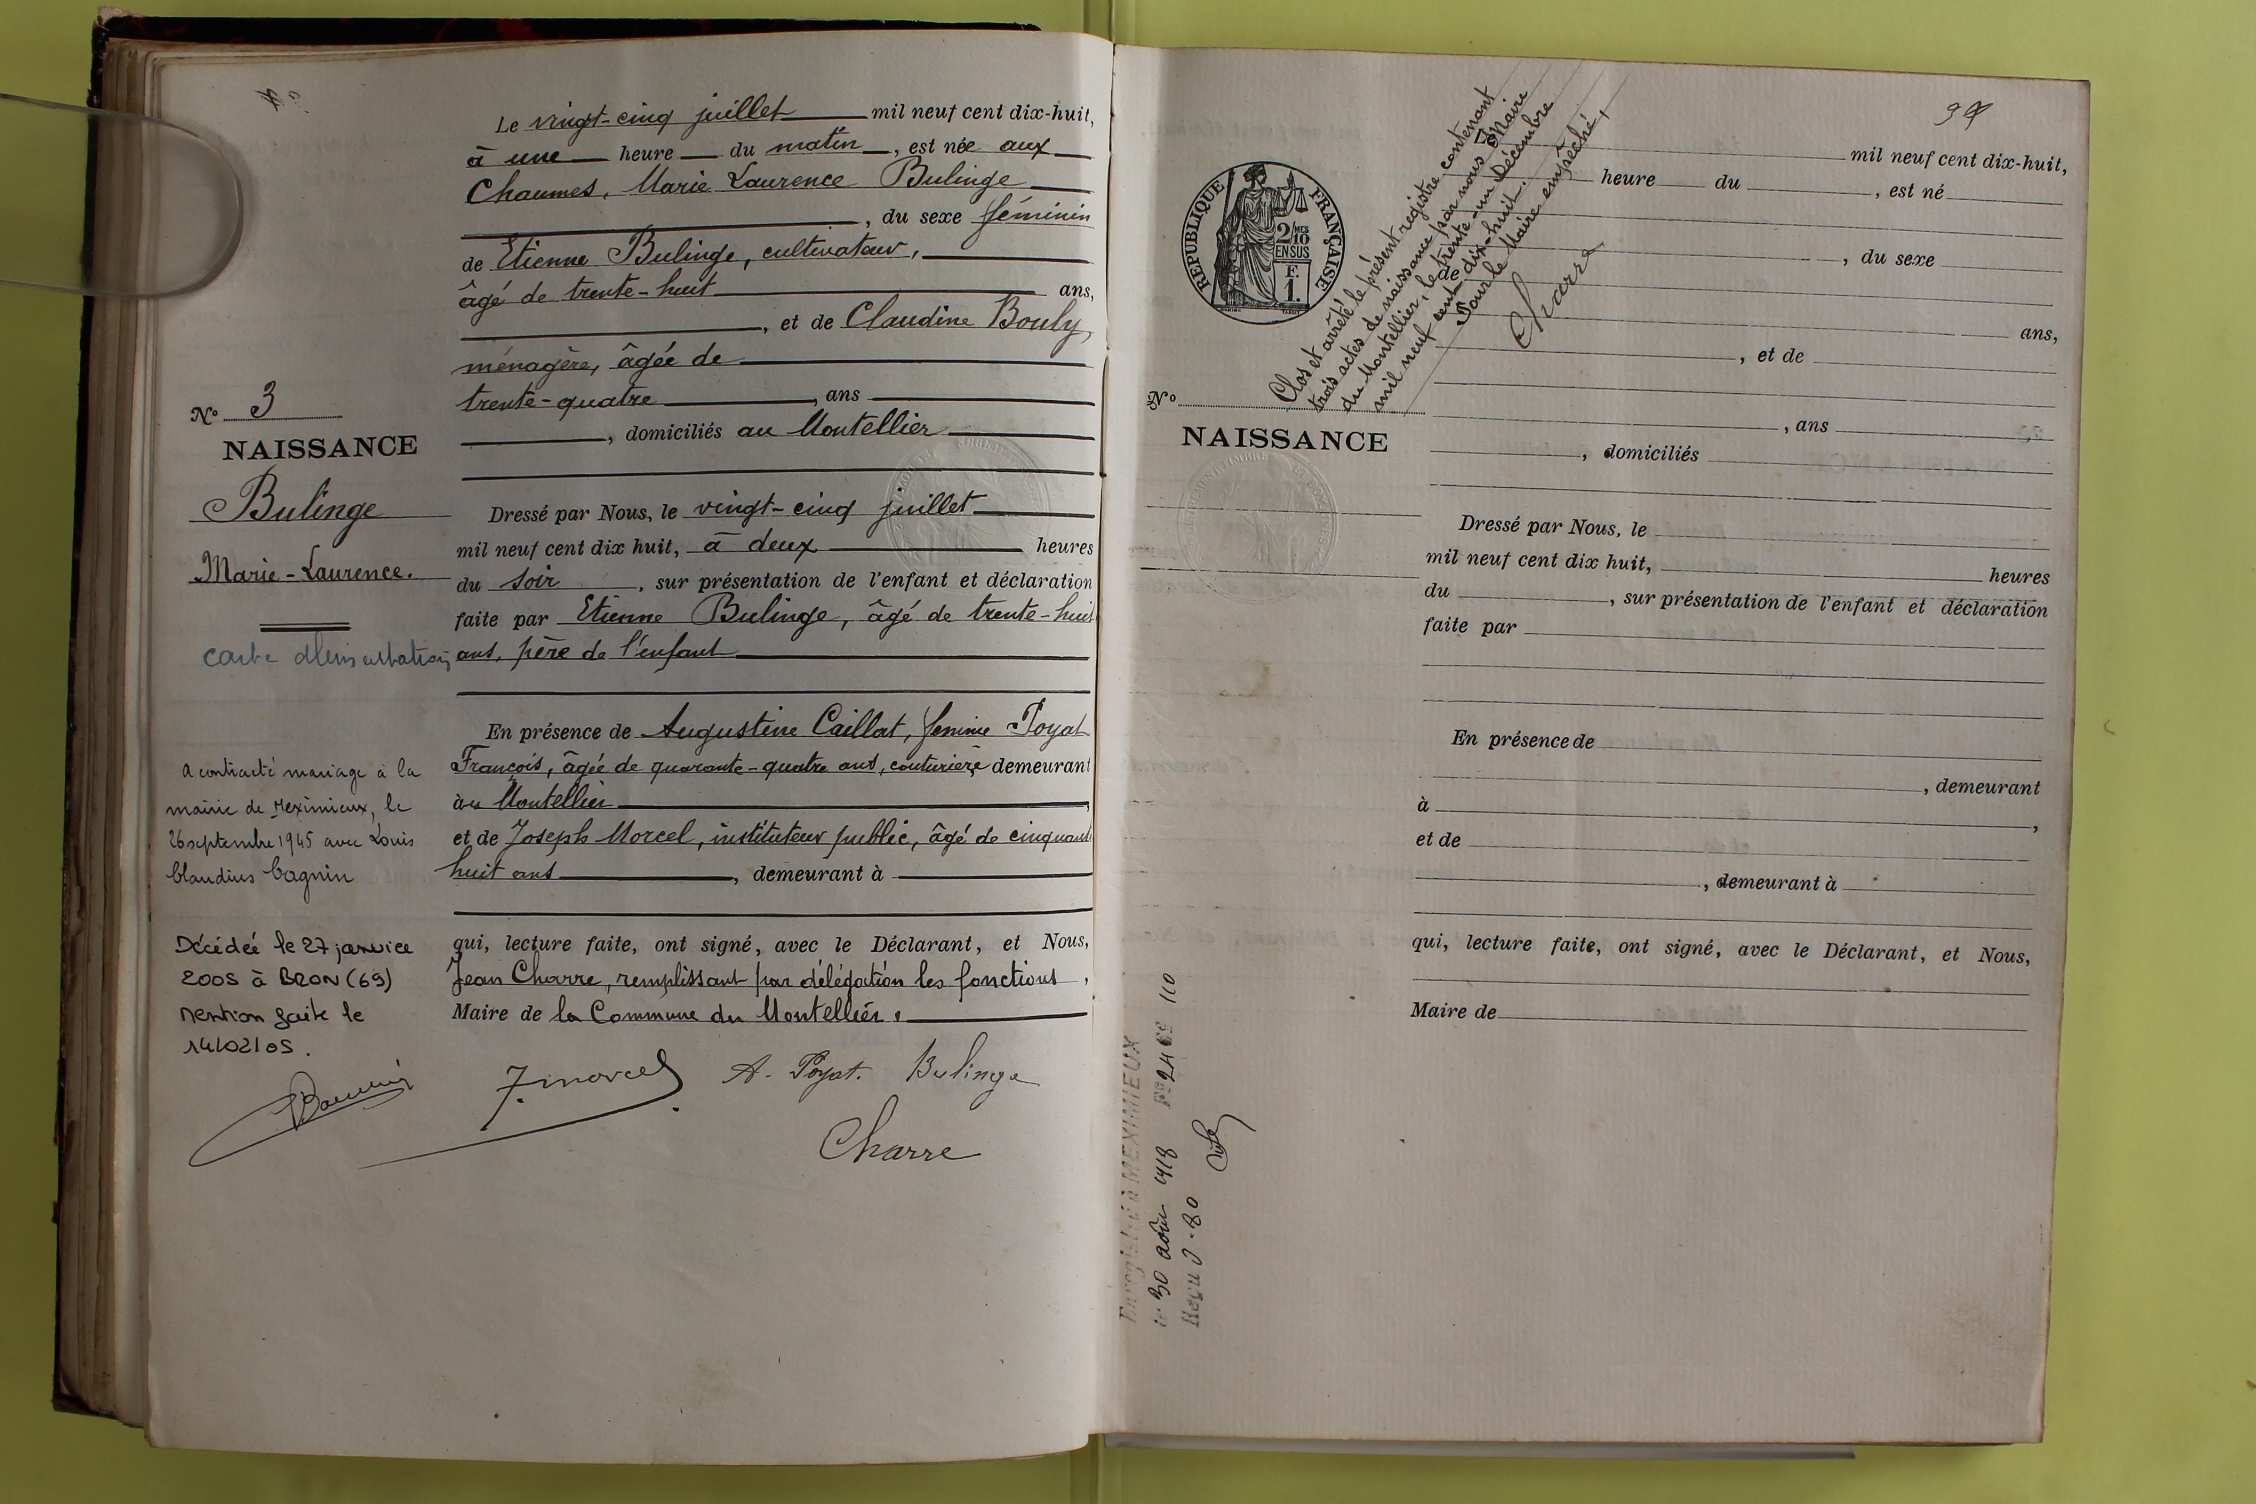 Le vingt-cinq juillet mil neuf cent dix-huit,
à une heure du matin, est née aux
Chaumes, Marie Laurence Bulinge
, du sexe féminin
de Etienne Bulinge, cultivateur,
âgé de trente-huit ans,
, et de Claudine Bouly,
ménagère, âgée de
trente-quatre, ans
, domiciliés au Montellier
Nº 3
NAISSANCE
Bulinge
Marie-Laurence.
Dressé par Nous, le vingt-cinq juillet
mil neuf cent dix huit, à deux heures
du soir, sur présentation de l'enfant et déclaration
faite par Etienne Bulinge, âgé de trente-huit
ans, père de l'enfant
En présence de Augustine Caillat, femme Poyat
François, âgée de quarante-quatre ans, couturière demeurant
au Montellier,
et de Joseph Morcel, instituteur public, âgé de cinquante
huit ans, demeurant à
qui, lecture faite, ont signé, avec le Déclarant, et Nous,
Jean Charre, remplissant par délégation les fonctions,
Maire de la Commune du Montellier.
J. Morcel A. Poyat. Bulinge
Charre
carte
a contracté mariage à la
mairie de Meximieux, le
26 septembre 1945 avec Louis
Claudius Cagnin
Décédée le 27 janvier
2005 à BRON (69)
mention faite le
14/02/05.
mil neuf cent dix-huit,
heure du, est né
, du sexe
de
ans,
, et de
, ans
, domiciliés
RÉPUBLIQUE FRANÇAISE
2/10 MES
EN SUS
F.
1.
Clos et arrêté le présent registre contenant
trois actes de naissance par nous Maire
du Montellier, le trente-un Décembre
mil neuf cent dix-huit.
Pour le Maire empêché,
Charre
Nº
NAISSANCE
Dressé par Nous, le
mil neuf cent dix huit, heures
du, sur présentation de l'enfant et déclaration
faite par
En présence de
, demeurant
à,
et de
, demeurant à
qui, lecture faite, ont signé, avec le Déclarant, et Nous,
Maire de
Enregistré à MEXIMIEUX
le 30 août 1918 Fº 24 Cº 110
Reçu 0.80